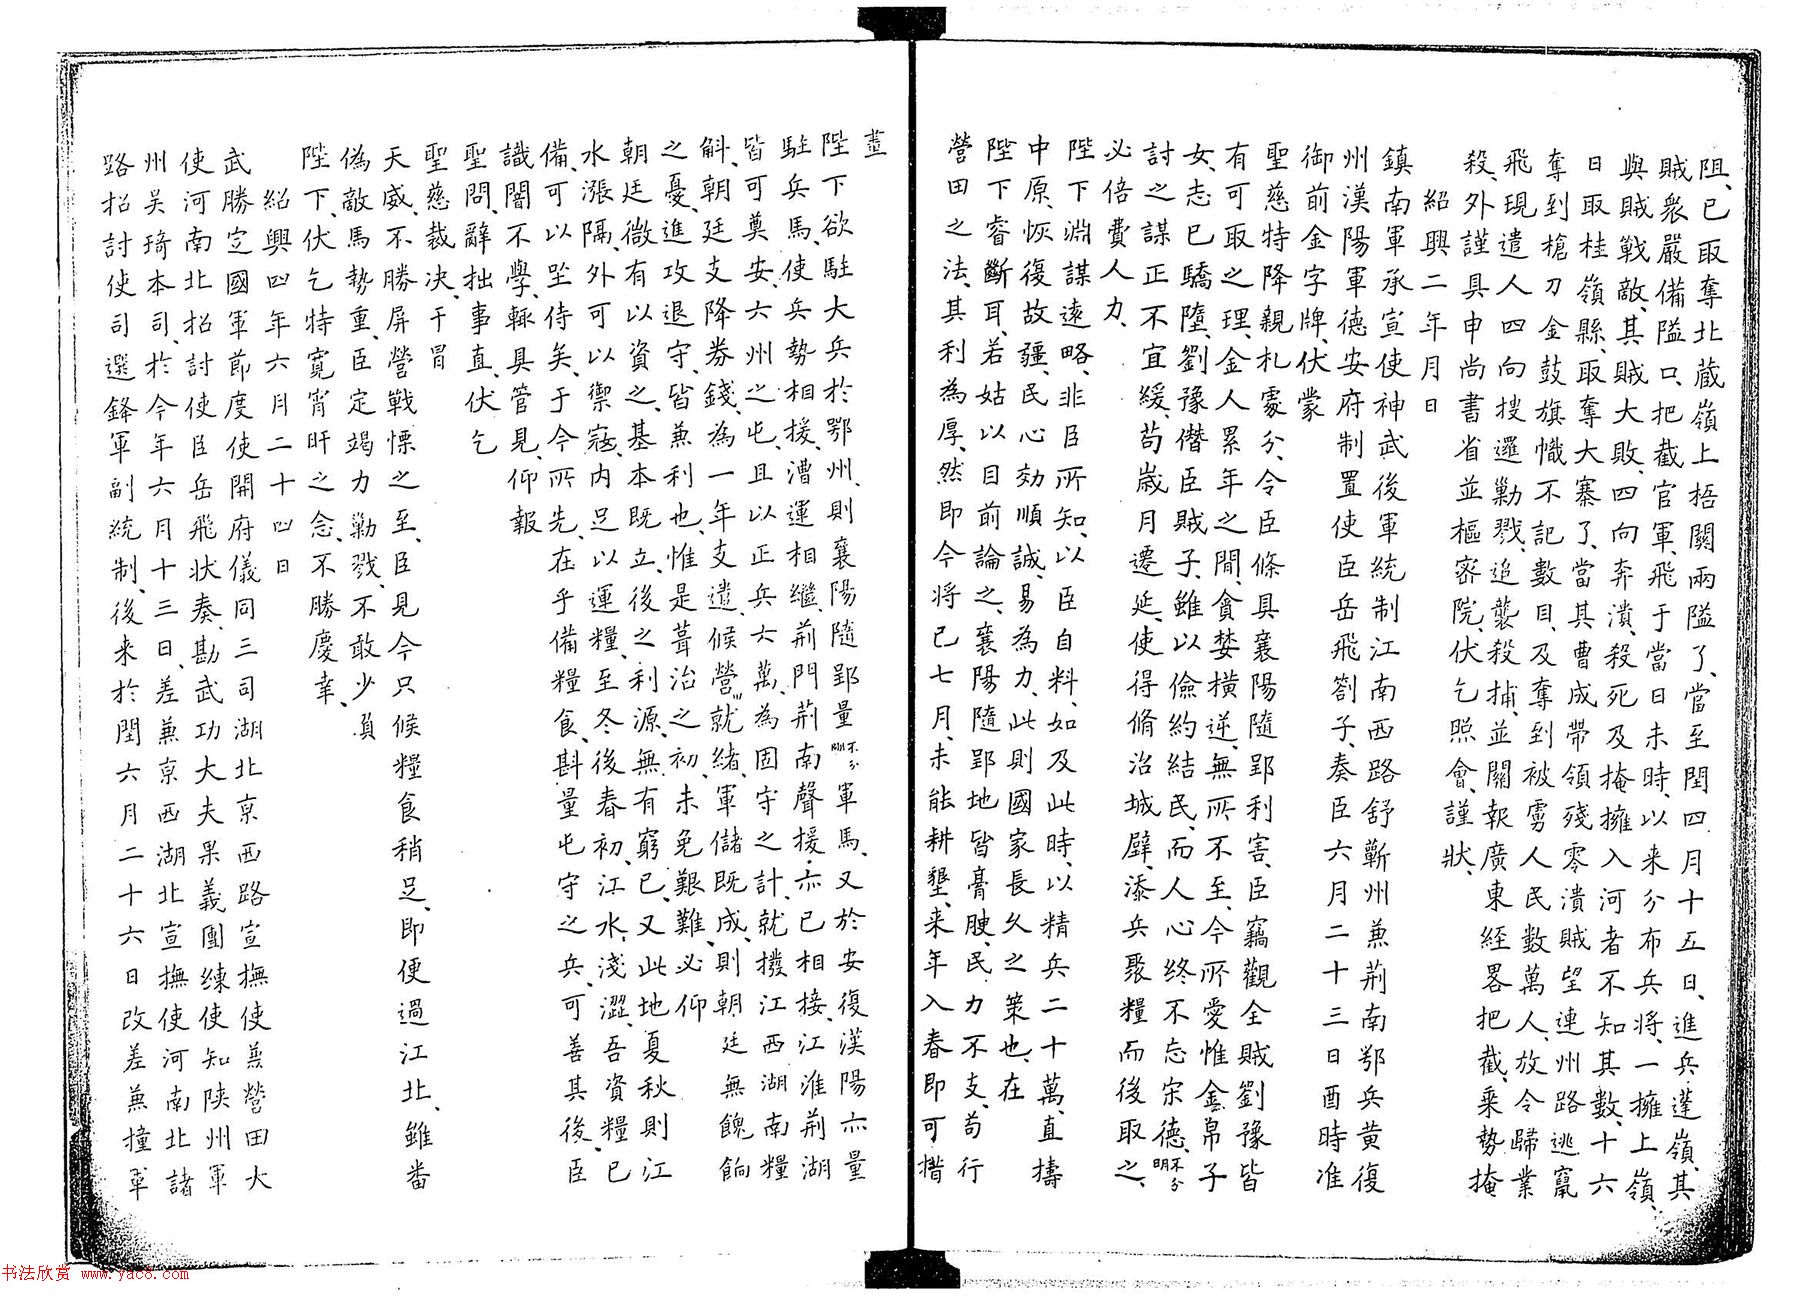 阻、已取奪北藏嶺上梧關兩隘了、當至閏四月十五日、進兵蓬嶺、其
賊衆嚴備隘口、把截官軍、飛于當日未時、以来分布兵將、一擁上嶺、
與賊戰敵、其賊大敗、四向奔潰、殺死及掩擁入河者不知其數、十六
日取桂嶺縣、取奪大寨了、當其曹成帶領殘零潰賊望連州路逃竄
奪到槍刀金鼓旗幟不記數目、及奪到被虜人民數萬人、放令歸業
飛現遣人四向搜邏勦戮、追襲殺捕、並關報廣東經畧把截、乘勢掩
殺、外謹具申尚書省並樞密院、伏乞照會、謹狀、
紹興二年月日
鎮南軍承宣使神武後軍統制江南西路舒蘄州兼荊南鄂兵黃復
州漢陽軍德安府制置使臣岳飛劄子、奏臣六月二十三日酉時准
御前金字牌、伏蒙
聖慈特降親札處分、令臣條具襄陽隨郢利害、臣竊觀全賊劉豫皆
有可取之理、金人累年之間、貪婪橫逆、無所不至、今所愛惟金帛子
女、志已驕墮、劉豫僭臣賊子、雖以儉約結民、而人心終不忘宋德、不分明
討之謀正不宜緩、苟歲月遷延、使得脩治城壁、添兵聚糧而後取之、
必倍費人力、
陛下淵謀遠略、非臣所知、以臣自料、如及此時、以精兵二十萬、直擣
中原、恢復故疆、民心効順誠、易為力、此則國家長久之策也、在
陛下睿斷耳、若姑以目前論之、襄陽隨郢地皆膏腴、民力不支、苟行
營田之法、其利為厚、然即今将已七月、未能耕墾、来年入春即可措
畫
陛下欲駐大兵於鄂州、則襄陽隨郢量不分明軍馬、又於安復漢陽亦量
駐兵馬、使兵勢相援、漕運相繼、荊門荊南聲援、亦已相接、江淮荊湖
皆可奠安、六州之屯、且以正兵六萬、為固守之計、就撥江西湖南糧
斛、朝廷支降券錢、為一年支遣、候營〃就緒、軍儲既成、則朝廷無餽餉
之憂、進攻退守、皆兼利也、惟是葺治之初、未免艱難、必仰
朝廷微有以資之、基本既立、後之利源、無有窮已、又此地夏秋則江
水漲隔、外可以禦寇、内足以運糧、至冬後春初、江水淺澀、吾資糧已
備、可以坐待矣、于今所先、在乎備糧食、斟量屯守之兵、可善其後、臣
識闇不學、輒具管見、仰報
聖問、辭拙事直、伏乞
聖慈裁决、干冒
天威、不勝屏營戰慄之至、臣見今只候糧食稍足、即便過江北、雖番
偽敵馬勢重、臣定竭力勦戮、不敢少負
陛下、伏乞特寬宵旰之念、不勝慶幸、
紹興四年六月二十四日
武勝定國軍節度使開府儀同三司湖北京西路宣撫使兼營田大
使河南北招討使臣岳飛狀奏、勘武功大夫果義團練使知陝州軍
州吳琦本司、於今年六月十三日、差兼京西湖北宣撫使河南北諸
路招討使司選鋒軍副統制、後来於閏六月二十六日改差兼撞軍
书法欣赏 www.yac8.com